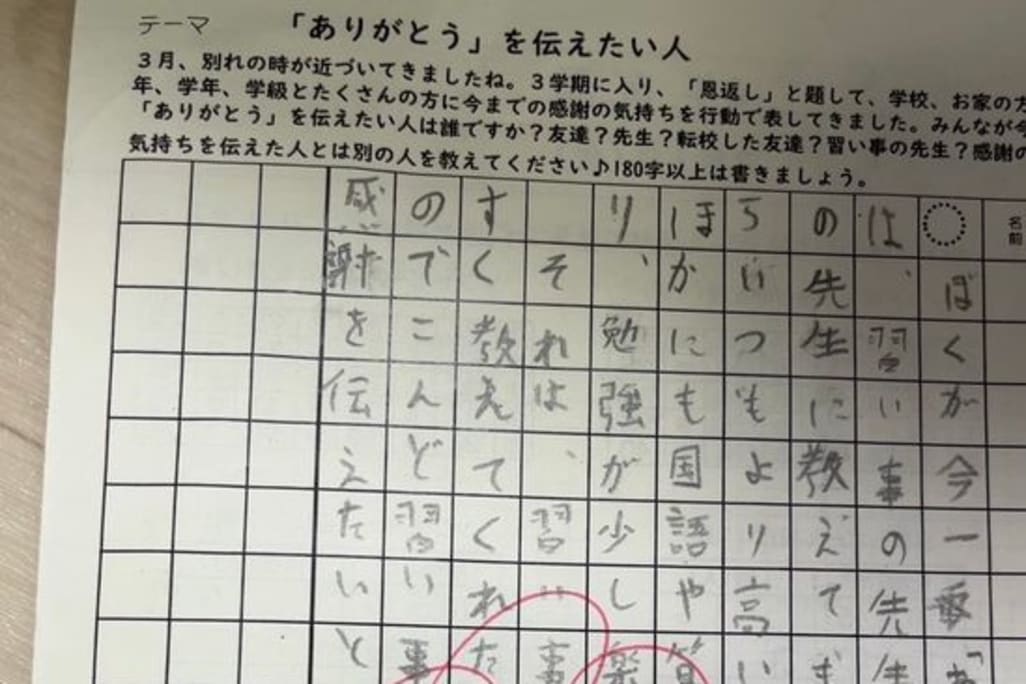 テーマ 「ありがとう」を伝えたい人
3月、別れの時が近づいてきましたね。3学期に入り、「恩返し」と題して、学校、お家の方
年、学年、学級とたくさんの方に今までの感謝の気持ちを行動で表してきました。みんなが今
「ありがとう」を伝えたい人は誰ですか?友達?先生?転校した友達?習い事の先生?感謝の
気持ちを伝えた人とは別の人を教えてください♪180字以上は書きましょう。
名前
ぼくが今一番「あ
は、習い事の先生
の先生に教えても
らいつもより高い
ほかにも国語や算
り、勉強が少し楽
それは、習い事
すぐ教えてくれた
のでこんど習い事
感謝を伝えたいと